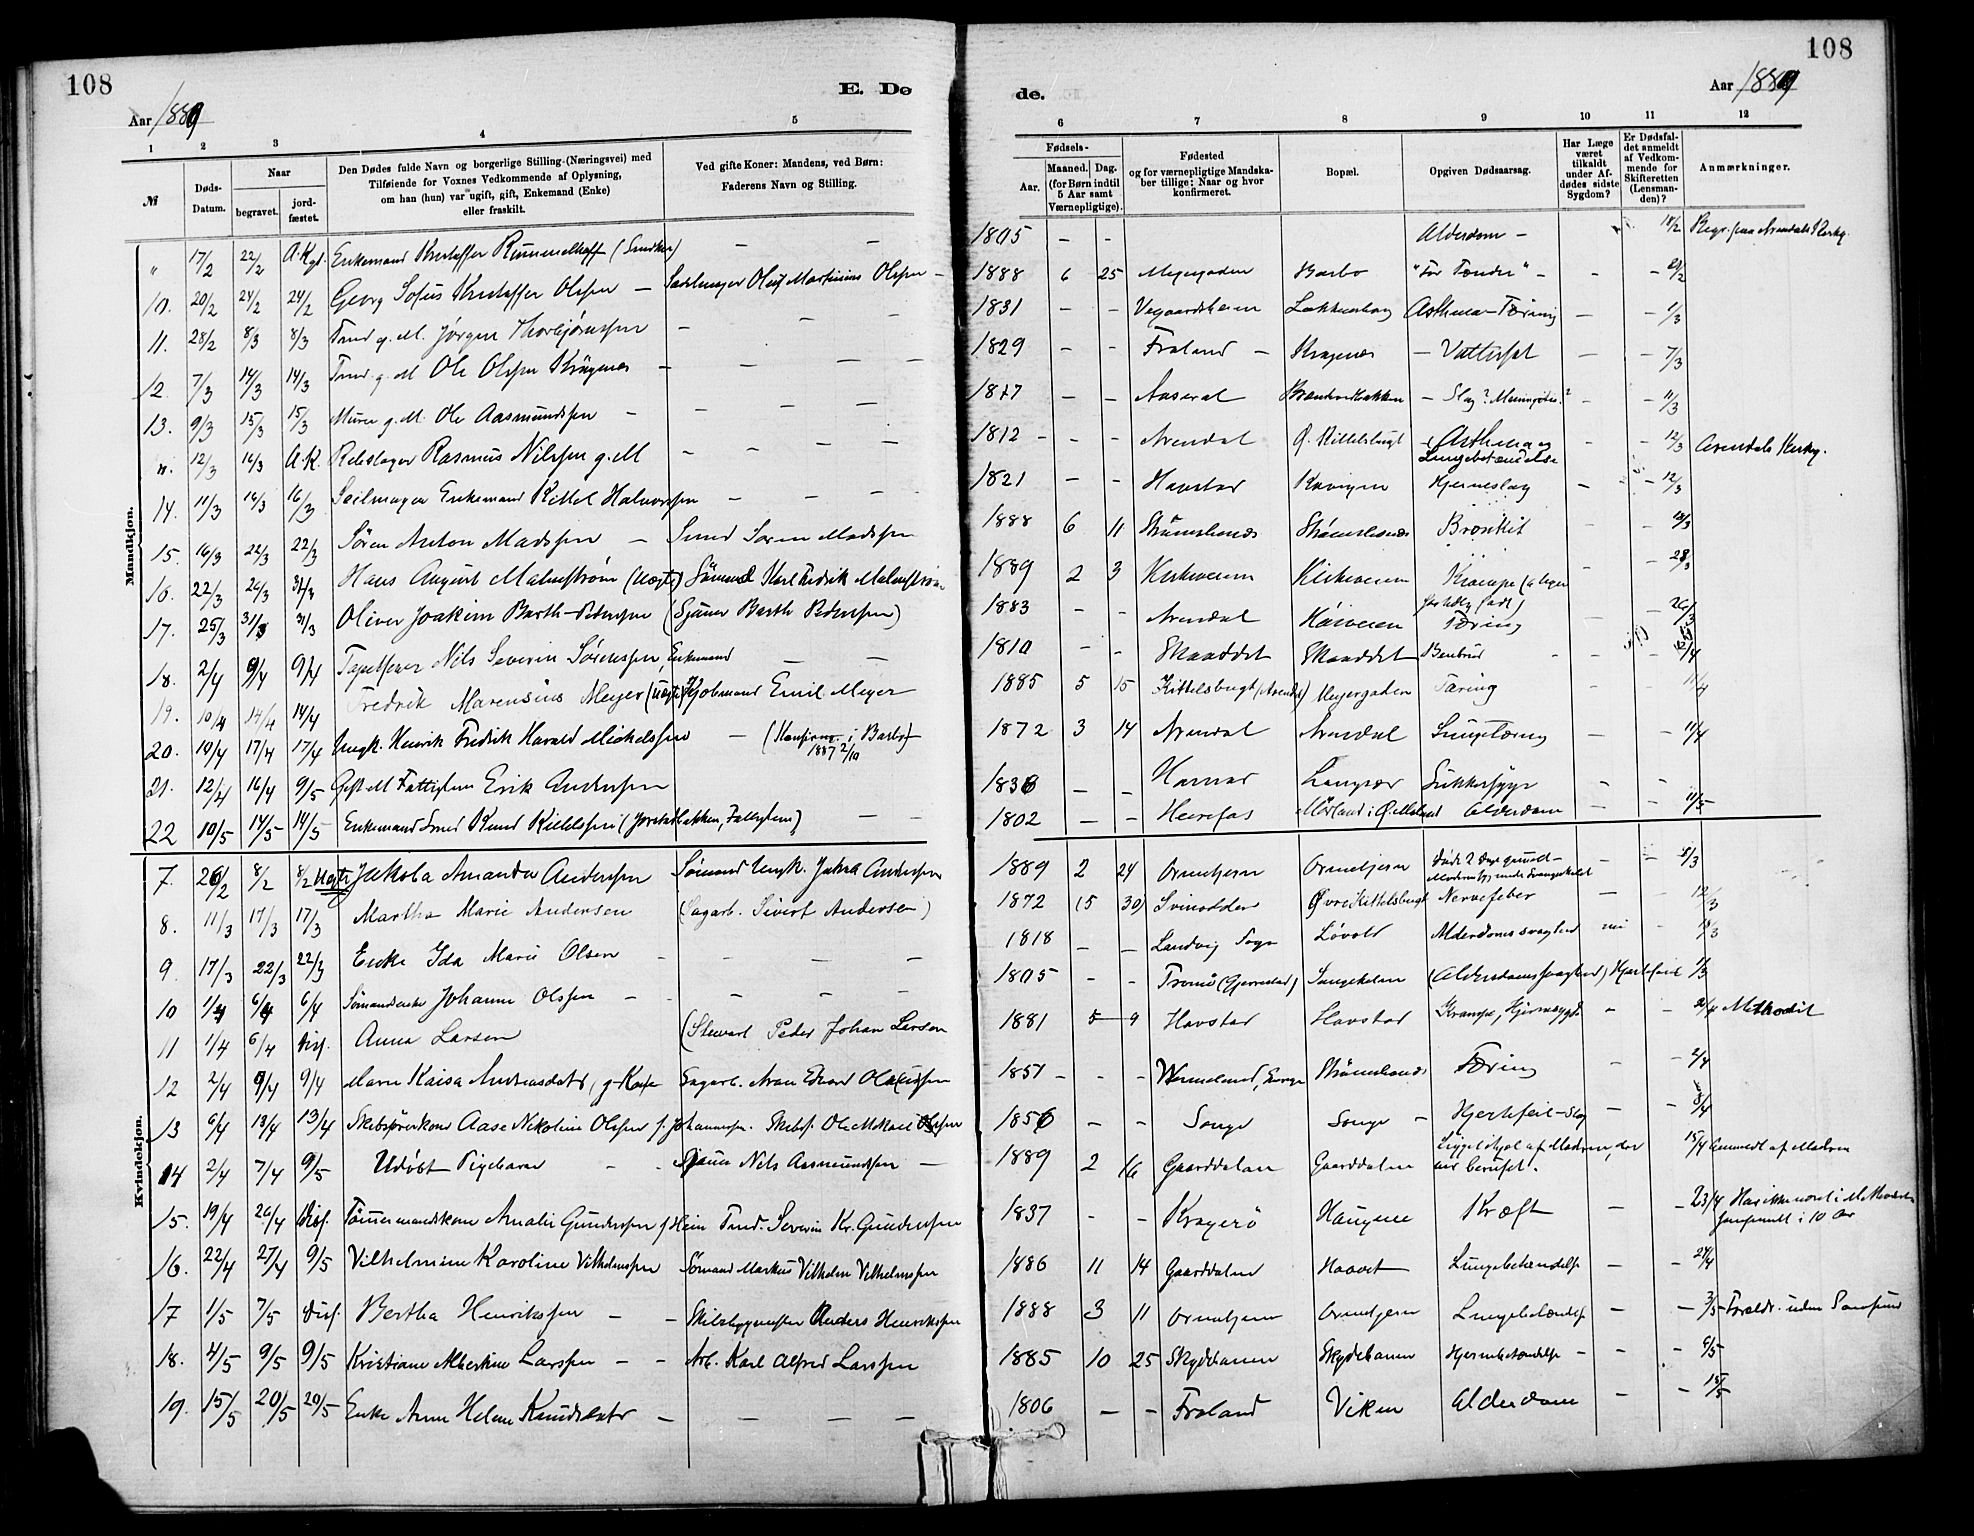 108
108
E. Dø
de.
Aar 1889
Aar 1889
1 2 3 4 5
6 7 8 9 10 11 12
№
Døds-Datum.
Naar
begravet.
jord-fæstet.
Den Dødes fulde Navn og borgerlige Stilling (Næringsvei) med
Tilføiende for Voxnes Vedkommende af Oplysning,
om han (hun) var ugift, gift, Enkemand (Enke)
eller fraskilt.
Ved gifte Koner: Mandens, ved Børn:
Faderens Navn og Stilling.
Fødsels-
Aar.
Maaned. Dag.
(for Børn indtil
5 Aar samt
Værnepligtige).
Fødested
og for værnepligtige Mandska-
ber tillige: Naar og hvor
konfirmeret.
Bopæl.
Opgiven Dødsaarsag.
Har Læge
været
tilkaldt
under Af-
dødes sidste
Sygdom?
Er Dødsfal-
det anmeldt
af Vedkom-
mende for
Skifteretten
(Lensman-
den)?
Anmærkninger.
Mandkjøn.
" 17/2 22/2 A. Kgd. Enkemand Kristoffer Rummelhoff — — 1805 — — Alderdom — 18/2 Begr. paa Arendals Kirkg.
10. 20/2 24/2 24/2 Georg Sofus Kristoffer Olsen — Sadelmager Oluf Martinius Olsen — 1888 6 25 Meyergaden Barbo "For Tænder" — — —
11. 28/2 8/3 8/3 Tmd g. M. Jørgen Thorbjørnsen — — — 1831 — — Vegaardsheien Asthma-Tæring — — 1/3
12. 7/3 14/3 14/3 Tmd g. M Ole Olsen Krøgenes — — — — 1829 — — Froland — Krøgenes — Vattersot — — 7/3
13. 9/3 15/3 15/3 Murer g. M. Ole Aasmundsen — — — — 1817 — — Aaseral — Slag? — — 11/3
". 12/3 16/3 A.K. Rebslager Rasmus Nilssen g. M — — — — 1812 — — — Arendal Ø. Kittelsbugt Asthma og Lungebetændelse — — 12/3 Arendals Kirkg.
14. 11/3 16/3 16/3 Seilmager Enkemand Kittel Halvorsen — — — 1821 — — Havstad Kavigen Hjerneslag — — 12/3
15. 16/3 22/3 22/3 Søren Anton Madssen — Smed Søren Madssen 1888 6 11 Strømsbonæs Strømsbonæs Bronkit — — 18/3
16. 22/3 26/3 31/3 Hans August Malmstrøm (Uægte) Sømand Karl Fredrik Malmstrøm 1889 2 3 Kirkeveien Kirkeveien Krampe — — 28/3
17. 25/3 31/3 31/3 Oliver Joakim Barth-Pedersen (Sjømer Barth Pedersen) 1883 — — Arendal Høiveien Tæring — — 26/3
18. 2/4 9/4 9/4 Tapetserer Nils Severin Sørensen, Enkemand — — 1810 — — Skaaddet Skaaddet Benbrud — — — 2/4
19. 10/4 14/4 14/4 Fredrik Marensius Meyer (uægte) Kjøbmand Emil Meyer 1885 5 15 Kittelsbugt (Arendal) Meyergaden Tæring — — 11/4
20. 10/4 17/4 17/4 Ungk. Henrik Fredrik Harald Mickelsen — (Konfirm. i Barbo) 1887 2/10 1872 3 14 Arendal Arendal Lungetæring — — 11/4
21. 12/4 16/4 9/5 Gift M Fattiglem Erik Andersen 1836 — — Havnæs Langsær Sukkersyge —
22 10/5 14/5 14/5 Enkemand Smed Knud Kittelsen — — 1802 — — Herefos Mørland i Ø. Moland Alderdom — — 11/5
Kvindekjøn.
7. 26/2 8/2 8/2 Uægte Jakoba Amanda Andersen Sømand Ungk. Andersen 1889 2 24 Ormetjern Ormetjern — — 8/3
8. 11/3 17/3 17/3 Martha Marie Andersen (Sagarb. Sivert Andersen) 1872 (5 30) Svinodden Øvre Kittelsbugt Nervefeber — — 12/3
9. 17/3 22/3 22/3 Enke Ida Marie Olsen — — — — 1818 — — Landvig Sogn Løvold Alderdomssvaghed nei — 18/3
10 1/4 6/4 6/4 Sømandsenke Johanne Olsen — — — — — 1805 — — Tromø (Gjerrestad) Songekilen (Alderdomssvaghed) Hjertefeil 1/3
11 1/4 6/4 Disf. Anna Larsen (Stewart Peder Johan Larsen 1881 5 9 Havstad Havstad Krampe, Hjernesygd. — — 2/4 Methodist
12 2/4 9/4 9/4 Maren Kaisa Andreasdatr, g. Kone Sagarb. 1851 — — — Strømsbonæs Tæring — — 2/4
13 6/4 13/4 13/4 Skibsførerkone Aase Nikoline Olsen f. Johannesen. Skibsf. Ole Mikael Olsen 1856 — — Songe Songe — Hjertefeil-Slag — — 8/4
14 2/4 7/4 9/5 Udøbt Pigebarn — — Sjømer Nils Aasmundsen — 1889 2 16 Gaarddalen Gaarddalen Ligget ihjel af Moderen, der var beruset. 15/4 Anmeldt af Moderen
15. 19/4 26/4 Disf. Tømmermandskone Amalie Gundersen f. Hein Tmd. Severin Kr. Gundersen 1837 — — Kragerø Haugene Kræft — — 23/4 Har ikke været i Methodist Samfundet i 10 Aar
16. 22/4 27/4 9/5 Vilhelmine Karoline Vilhelmsen Sømand Markus Vilhelm Vilhelmsen 1886 11 14 Gaarddalen Haavet Lungebetændelse — — 24/4
17 1/5 7/5 Disf. Bertha Henriksen — — Skibsbygmester Anders Henriksen 1888 3 11 Ormetjern Ormetjern Lungebetændelse — — 3/5 Foreldr. uden Samfund
18. 4/5 9/5 9/5 Kristiane Albertine Larssen — — Arb. Karl Alfred Larssen 1885 10 25 Skydebanen Skydebanen Hjernebetændelse — — — 6/5
19. 15/5 20/5 20/5 Enke Anne Helene Knudsdatr — — — — 1806 — — Froland Viken Alderdom — — 18/5